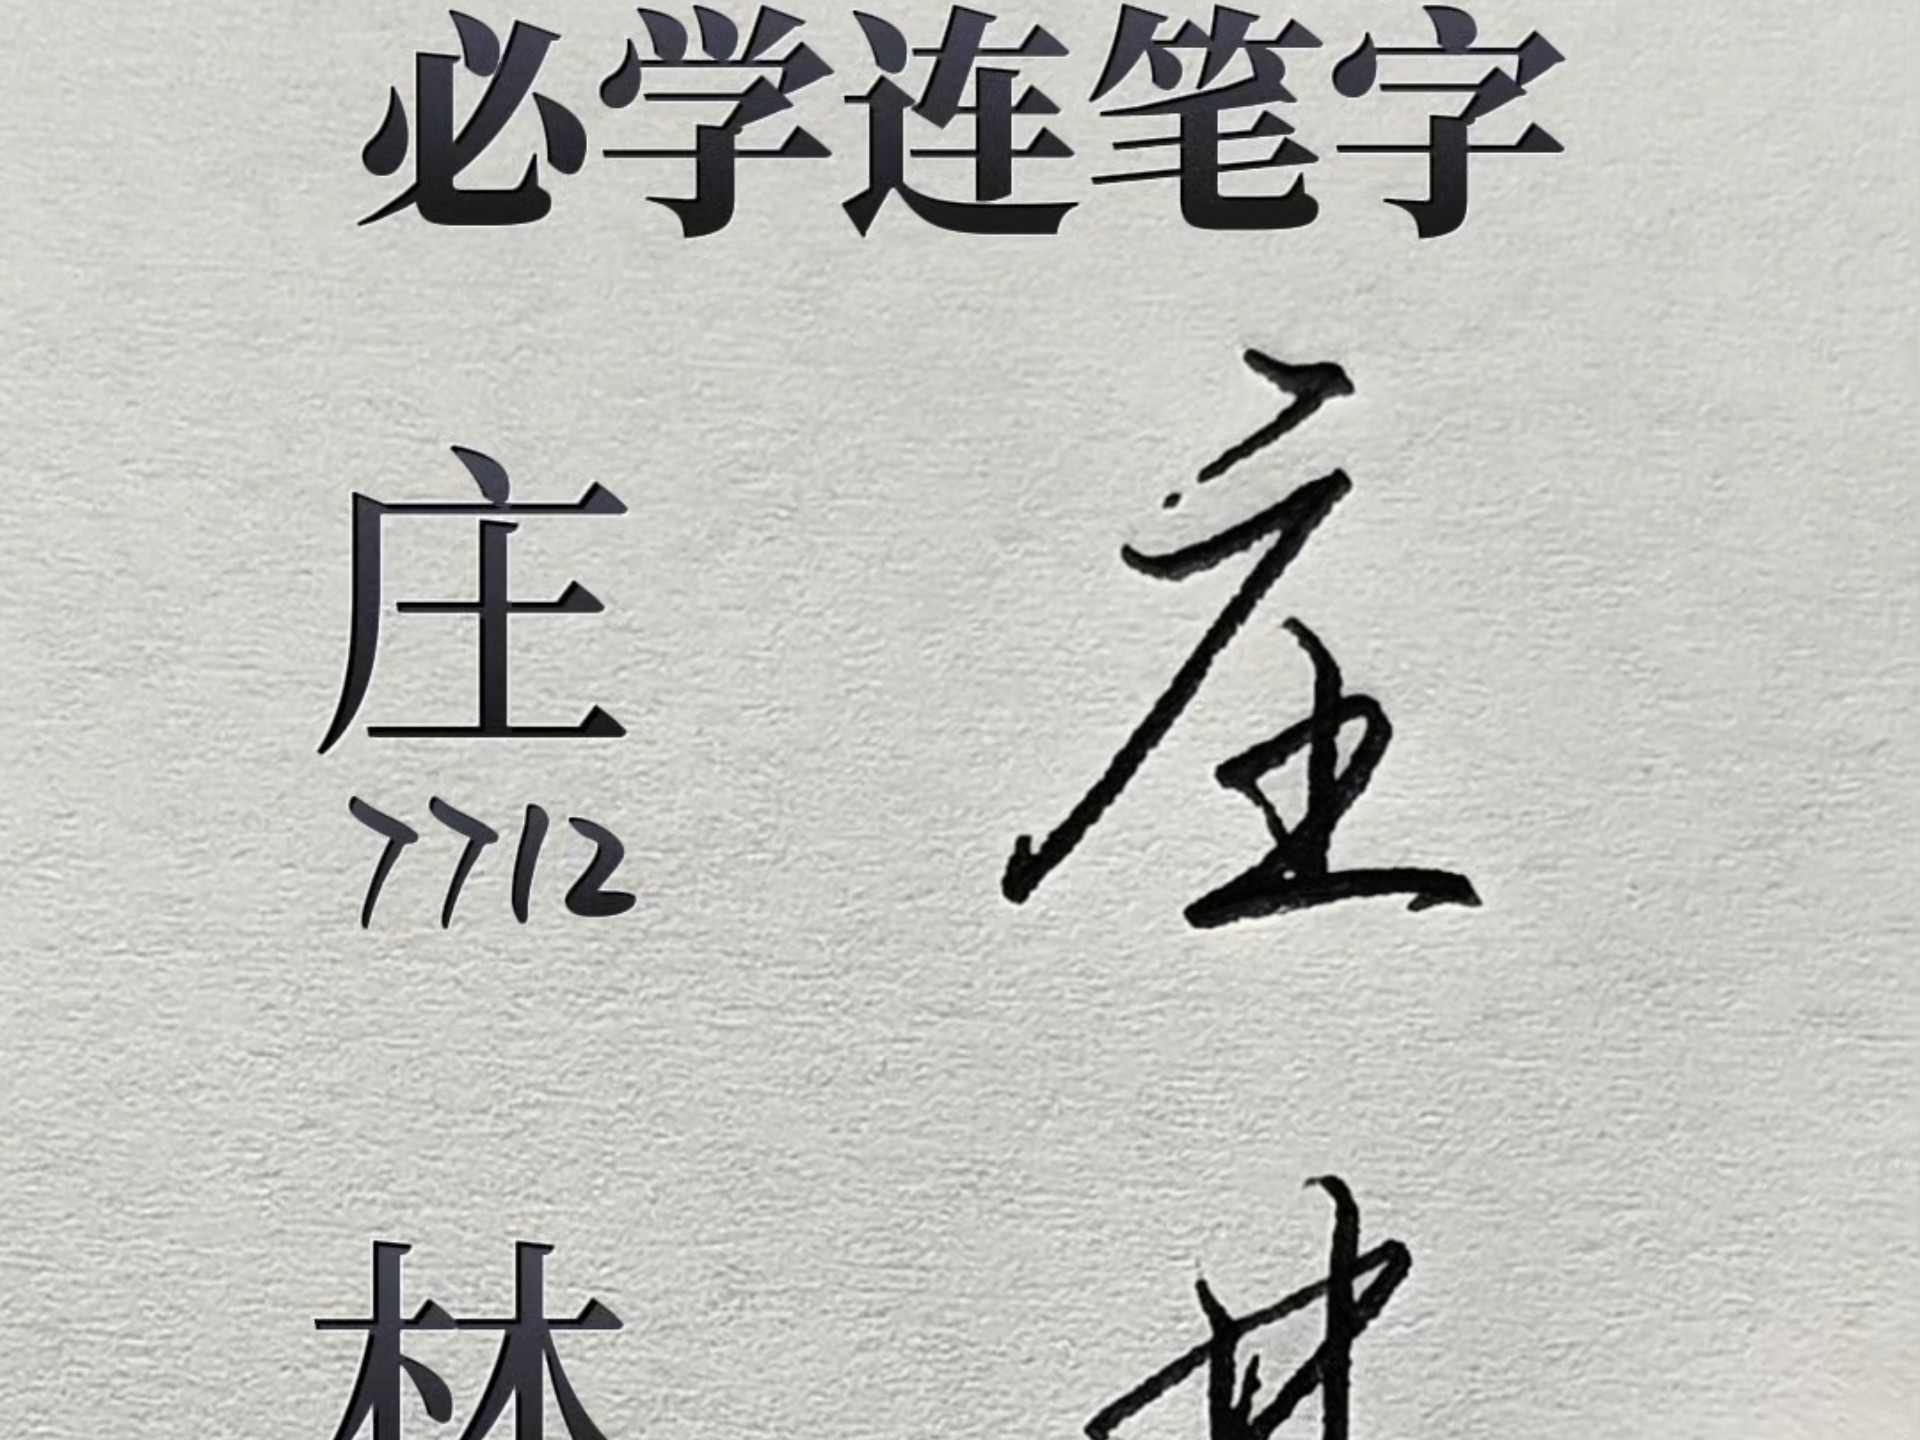 必学连笔字
庄 庄
7712
林 林